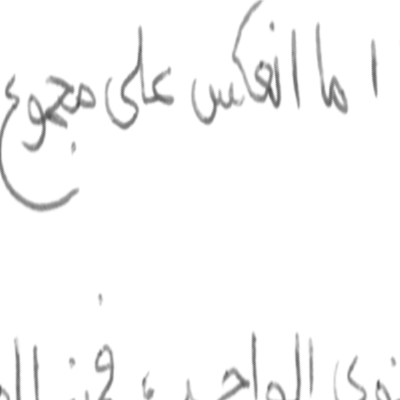 ا ما انعكس على مجموع
الواحد، فمن